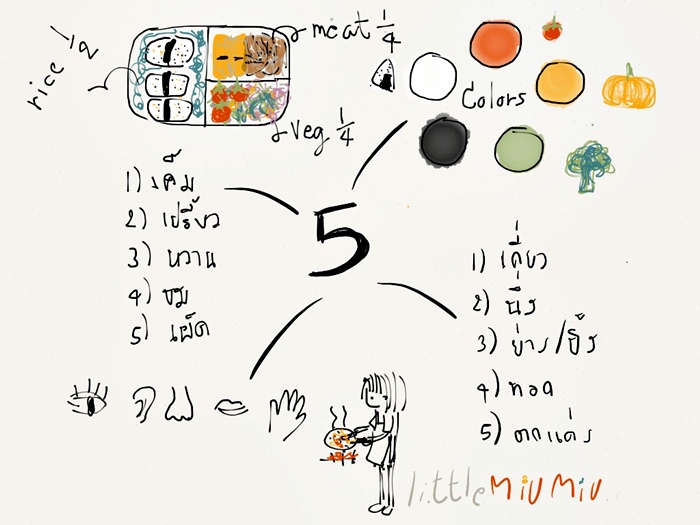 rice 1/2
meat 1/4
veg 1/4
Colors
5
1) เค็ม
2) เปรี้ยว
3) หวาน
4) ขม
5) เผ็ด
1) เคี่ยว
2) นึ่ง
3) ย่าง/ปิ้ง
4) ทอด
5)
little miu miu